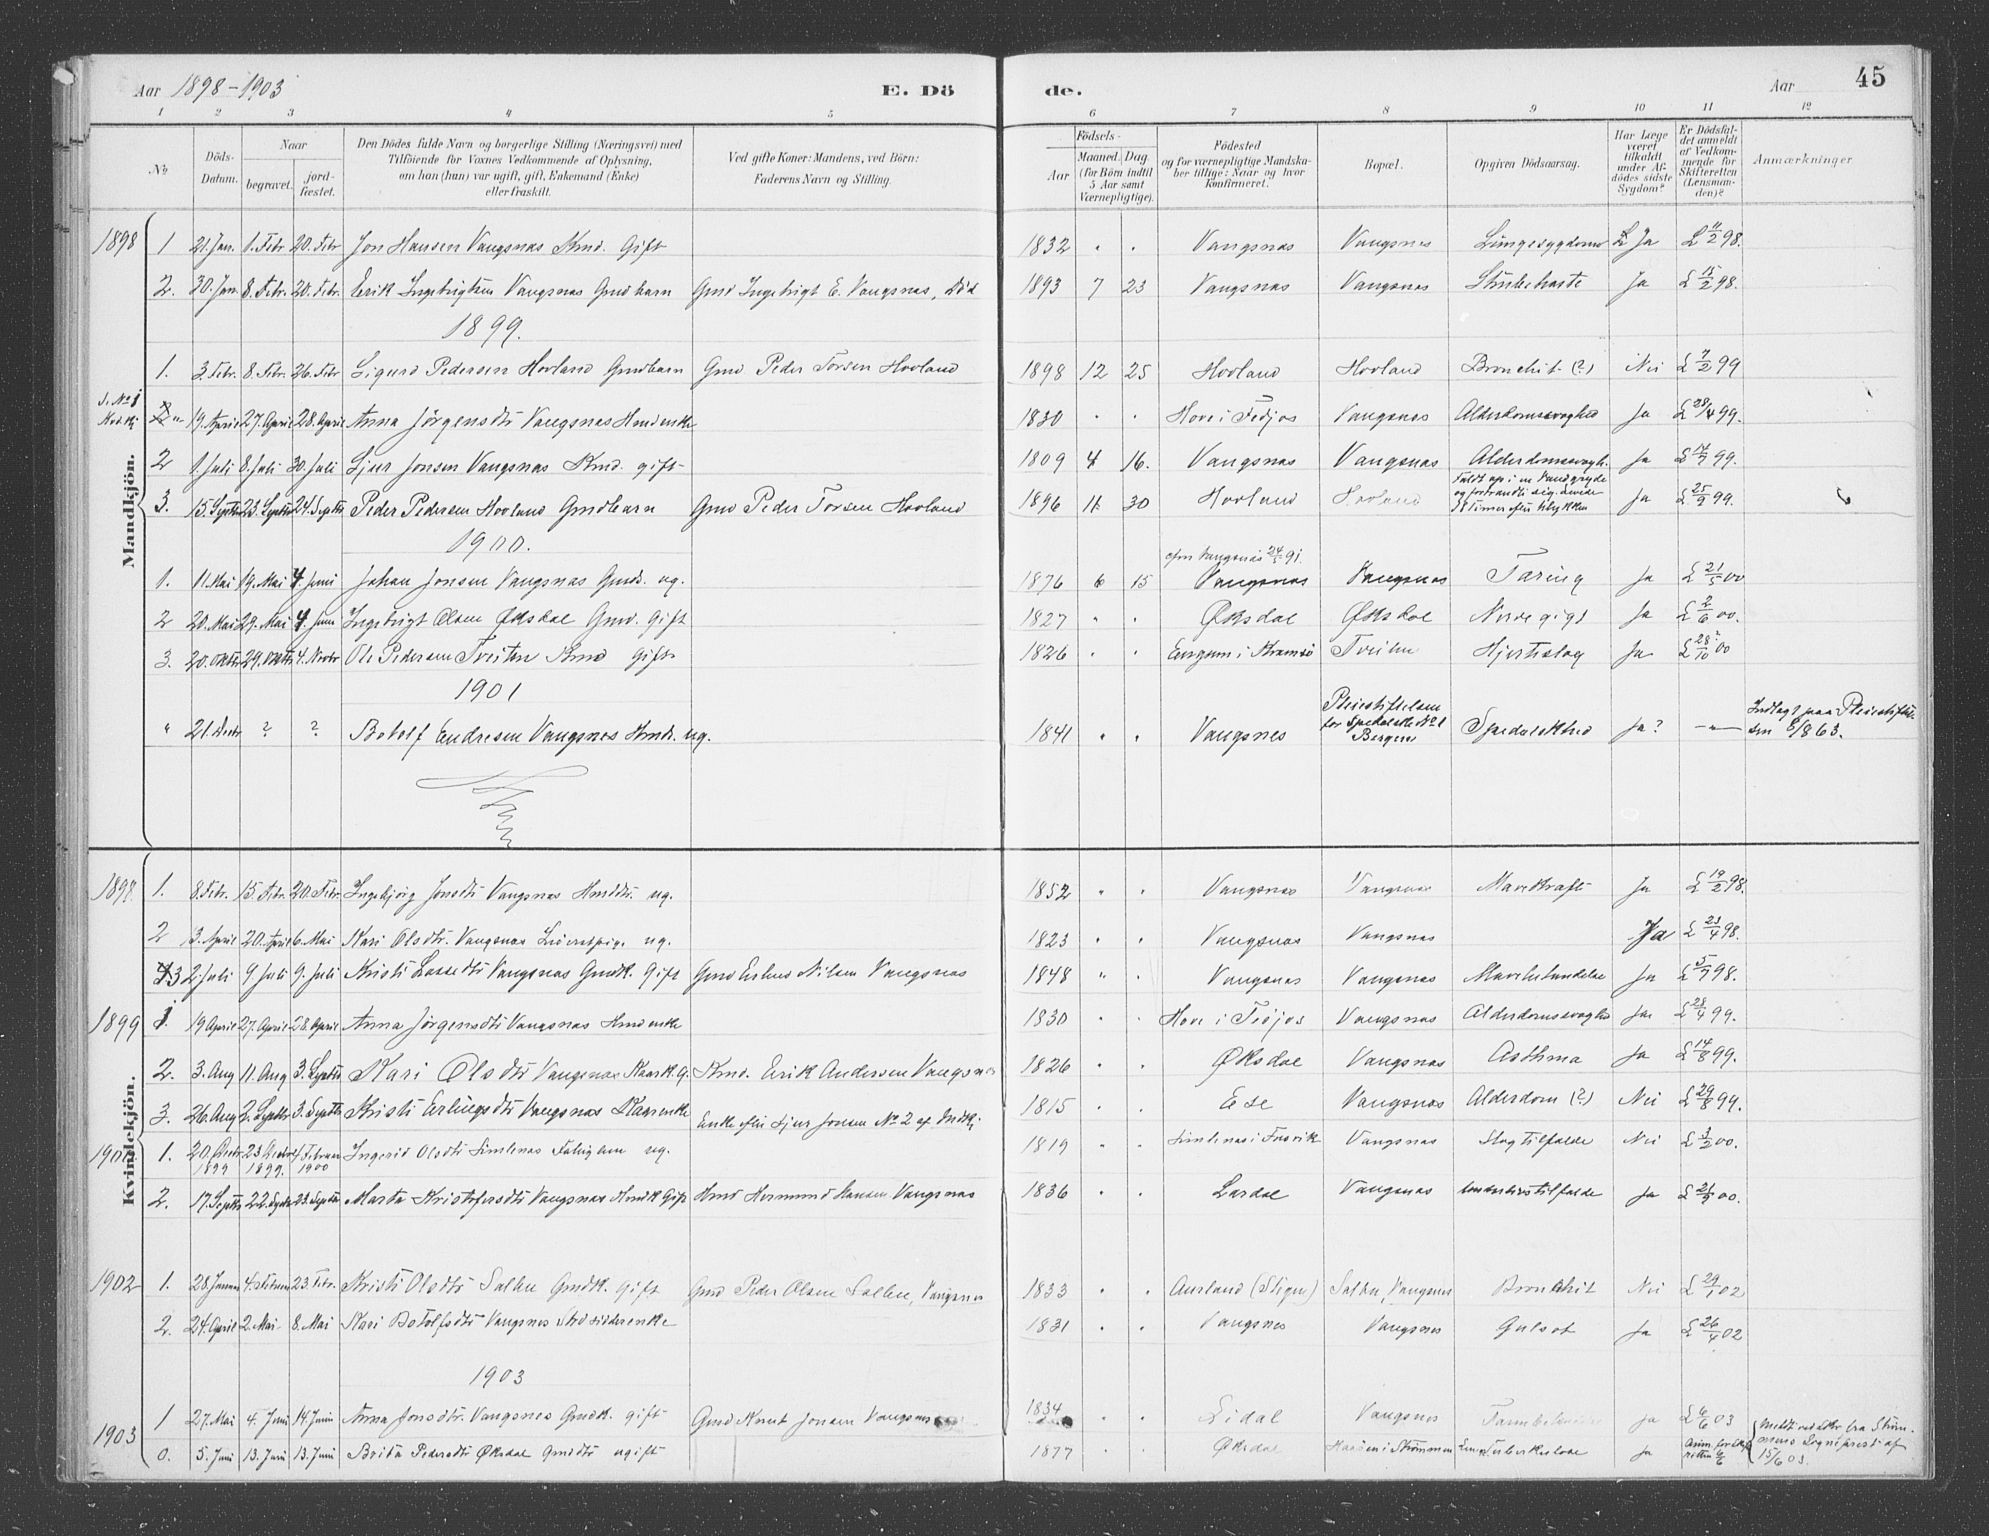 Aar 1898-1903 E. Dö de. Aar 45
1 2 3 4 5 6 7 8 9 10 11 12
No
Döds-Datum.
Naar
begravet. jord-fæstet.
Den Dödes fulde Navn og borgerlige Stilling (Næringsvei) med
Tilföiende for Voxnes Vedkommende af Oplysning,
om han (hun) var ugift, gift, Enkemand (Enke)
eller fraskilt.
Ved gifte Koner: Mandens, ved Börn:
Faderens Navn og Stilling.
Födsels-
Aar Maaned. Dag
(for Börn indtil
5 Aar samt
Værnepligtige).
Födested
og for værnepligtige Mandska-
ber tillige: Naar og hvor
konfirmeret.
Bopæl.
Opgiven Dödsaarsag.
Har Læge
været
tilkaldt
under Af-
dödes sidste
Sygdom?
Er Dödsfal-
det anmeldt
af Vedkom-
mende for
Skifteretten
(Lensman-
den)?
Anmærkninger
Mandkjön.
1898 1 21. Jan. 1. Febr 20. Febr Jon Hansen Vangsnas Kmd. Gift 1832 " " Vangsnas Vangsnes Lungesygdom Ja L 11/2 98.
2. 30. Jan 8. Febr. 20. Febr. Erik Ingebrigtsen Vangsnas Gmdbarn Gmd Ingebrigt E. Vangsnas, död 1893 7 23 Vangsnas Vangsnas Strubehoste Ja L 15/2 98.
1899.
1. 3. Febr. 8. Febr. 26. Febr Sigurd Pedersen Hovland Gmdbarn Gmd Peder Torsen Hovland 1898 12 25 Hovland Hovland Bronchit (?) Nei L 7/2 99
19. April 27. April 28. April Anna Jörgensdtr Vangsnas Hmdenke 1830 " " Hove i Fedjos Vangsnas Alderdomssvaghed Ja L 28/4 99.
2 1. Juli 8. Juli 30. Juli Sjur Jonsen Vangsnas Kmd. gift 1809 4 16. Vangsnas Vangsnas Alderdomssvagh. Ja L 14/7 99.
3. 15. Septbr 23. Septbr 24. Septbr Peder Pedersen Hovland Gmdbarn Gmd Peder Torsen Hovland 1896 11 30 Hovland Hovland Faldt op i en Vandgryde
og forbrændte sig, döde
Timer efter Ulykken Ja L 25/9 99.
1900.
cfm Vangsnas 24/5 91.
1. 11. Mai 19. Mai 4. Juni Johan Jonsen Vangsnas Gmds. ug. 1876 6 15 Vangsnas Vangsnas Tæring Ja L 21/5 00
2 20. Mai 29. Mai 4. Juni Ingebrigt Olsen Öksdal Gmd. Gift 1827 " " Öksdal Öksdal Ja L 2/6 00.
3. 20. Oktbr 29. Oktbr 4. Novbr Ole Pedersen Tveiten Kmd Gift 1826 " " Tveiten Hjerteslag Ja L 28/10 00
1901
" 21. Decbr ? ? Botolf Endresen Vangsnes Hmds. ug. 1841 " " Vangsnes Pleiestiftelsen
for Spedalske No 1
Bergen Spedalskhed Ja? —"— Indlagt paa Pleiestiftel-
sen 6/8 63.
Kvindekjön.
1898. 1. 8. Febr. 15. Febr. 20. Febr. Ingebjörg Jonsdtr Vangsnas Hmddtr. ug. 1852 " " Vangsnas Vangsnas Mavekræft Ja L 19/2 98.
2 3. April 20. April 6. Mai Kari Olsdtr. Vangsnas ug. 1823 " " Vangsnas Vangsnas Ja L 23/4 98.
3 2. Juli 9 Juli 9. Juli Kristi Lassedtr Vangsnas Gmdk. Gift Gmd Erland Nilsen Vangsnas 1848 " " Vangsnas Vangsnas Mavebetændelse Ja L 5/7 98.
1899 1. 19 April 27. April 28. April Anna Jörgensdtr Vangsnas Hmdenke 1830 " " Hove i Fedjos Vangsnas Alderdomssvaghed Ja L 28/4 99.
2. 3. Aug 11. Aug 3. Septbr Kari Olsdtr Vangsnas Kaark. G. Kmd. Erik Andersen Vangsnas 1826 " " Öksdal Vangsnas Asthma Ja L 14/8 99.
3. 26. Aug 2. Septbr 3. Septbr Kristi Erlingsdtr Vangsnas Kaarenke Enke efter Sjur Jonsen No 2 af Mdkj. 1815 " " Ese Vangsnas Alderdom (?) Nei L 29/8 99.
1900 1. 20. Decbr
1899 23 Decbr
1899. 4 Februar
1900 Ingerid Olsdtr Simlenas Fattiglem ug. 1819 " " Simlenas i Fresvik Vangsnas Slagtilfælde Nei L 3/2 00.
2. 17. Septbr 22. Septbr 23. Septbr Marta Kristofersdtr Vangsnas Hmdk Gift Hmd Hermund Hansen Vangsnas 1836 " " Lærdal Vangsnas Ja L 21/9 00.
1902 1. 28. Januar 4. Februar 23. Febr. Kristi Olsdtr Salbu Gmdk. gift Gmd Peder Olsen Salbu, Vangsnes 1833 " " Aurland (Stigen) Salbu, Vangsnes Bronchit Nei L 29/1 02
2. 24. April 2. Mai 8. Mai Kari Botolfsdtr Vangsnes Strandsidderenke 1831 " " Vangsnes Vangsnes Gulsot Ja L 26/4 02
1903
1903 1 27. Mai 4. Juni 14. Juni Anna Jonsdtr. Vangsnes Gmdk. gift Gmd Knut Jonsen Vangsnes 1834 " " Eidal Vangsnes Ja L 6/6 03
0. 5. Juni 13. Juni 13. Juni Brita Pedersdtr Öksdal Gmddtr ugift 1877 " " Öksdal i Strömmen Tuberkulose Ja Anm. for Skif-
retten 6/6 Meldt ved Skr. fra Ström-
mens Sogneprest af
15/6 03.